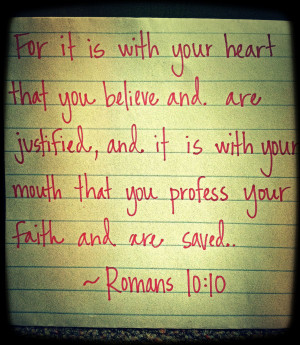 For it is with your heart
that you believe and. are
justified, and it is with your
mouth that you profess your
faith and are saved..
~ Romans 10:10